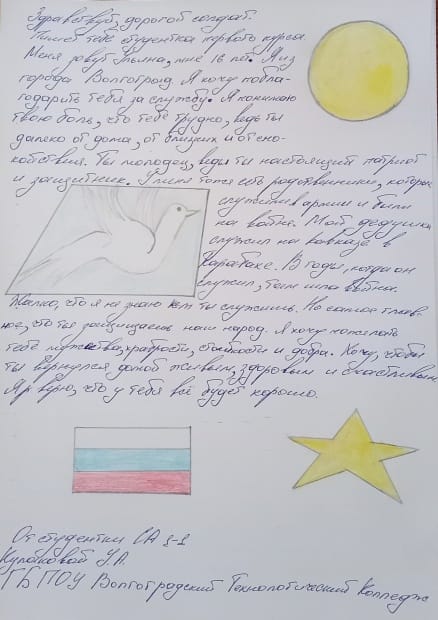 Здравствуй, дорогой солдат.
Пишет тебе студентка первого курса.
Меня зовут Ульяна, мне 16 лет. Я из
города Волгоград. Я хочу побла-
годарить тебя за службу. Я понимаю
твою боль, что тебе трудно, ведь ты
далеко от дома, от близких и от спо-
койствия. Ты молодец, ведь ты настоящий патриот
и защитник. У меня тоже есть родственники, которые
служили в армии и были
на войне. Мой дедушка
служил на Кавказе в
Карабахе. В годы, когда он
служил, там шла война.
Жалко, что я не знаю кем ты служишь. Но самое глав-
ное, что ты защищаешь наш народ. Я хочу пожелать
тебе мужества, храбрости, стойкости и добра. Хочу, чтобы
ты вернулся домой живым, здоровым и счастливым.
Я верю, что у тебя всё будет хорошо.
От студентки СА 1-1
У.А.
ГБПОУ Волгоградский Технологический Колледж